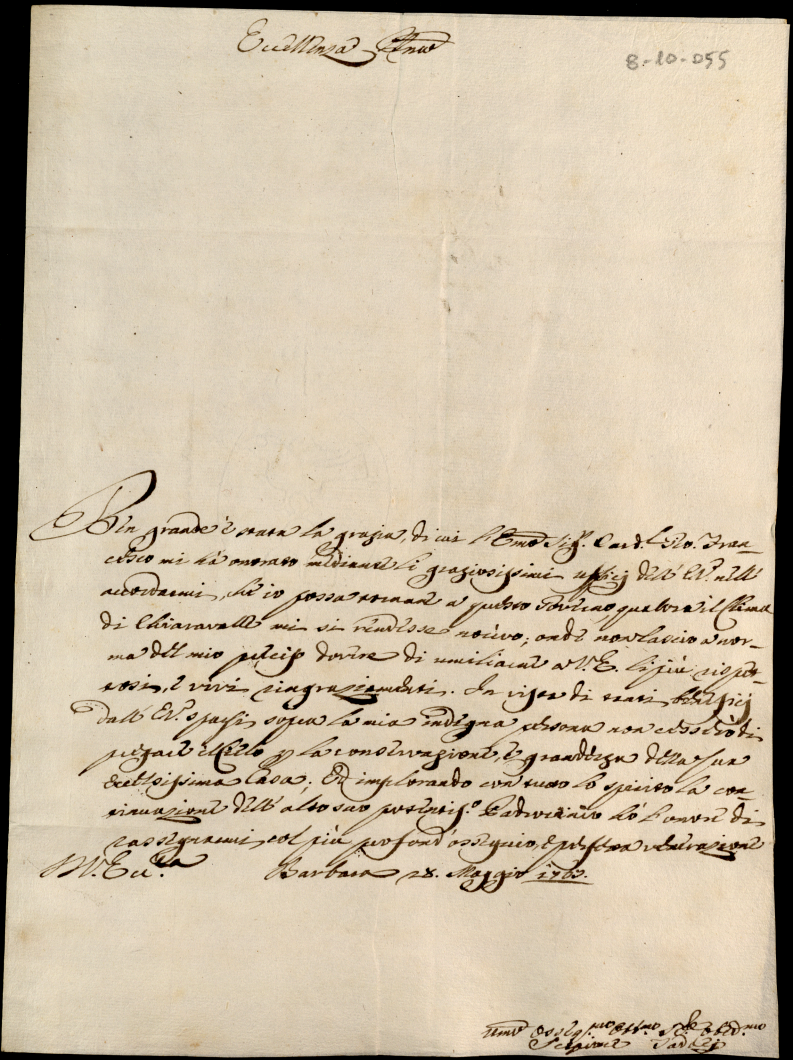 Eccellenza
8-10-055
Ben grande è stata la grazia, di cui l'Emo Sig.r Card.l Gio. Fran-
cesco mi hà onorato mediante li graziosissimi ufficj dell' E.V. nell'
accordarmi, che io possa tornare a questo Governo qualora il Clima
di Chiaravalle mi si rendesse nocivo; onde non lascio a nor-
ma del mio preciso dovere di umiliare a V.E. li più rispet-
tosi, e vivi ringraziamenti. In vigor di tanti beneficj
dall' E.V. sparsi sopra la mia indegna persona non cesserò di
pregare il Cielo p la conservazione, e grandezza della Sua
Eccelsissima Casa; Ed implorando con tutto lo spirito la con-
tinuazione dell' alto suo potentis.o Padrocinio hò l'onore di
rassegnarmi col più profond' ossequio, e perfetta venerazione
D.V. Ecc.za Barbara 28. Maggio 1763.
Umo Osseq.mo Obb.mo Se.re Obed.mo
Scipione Taddei